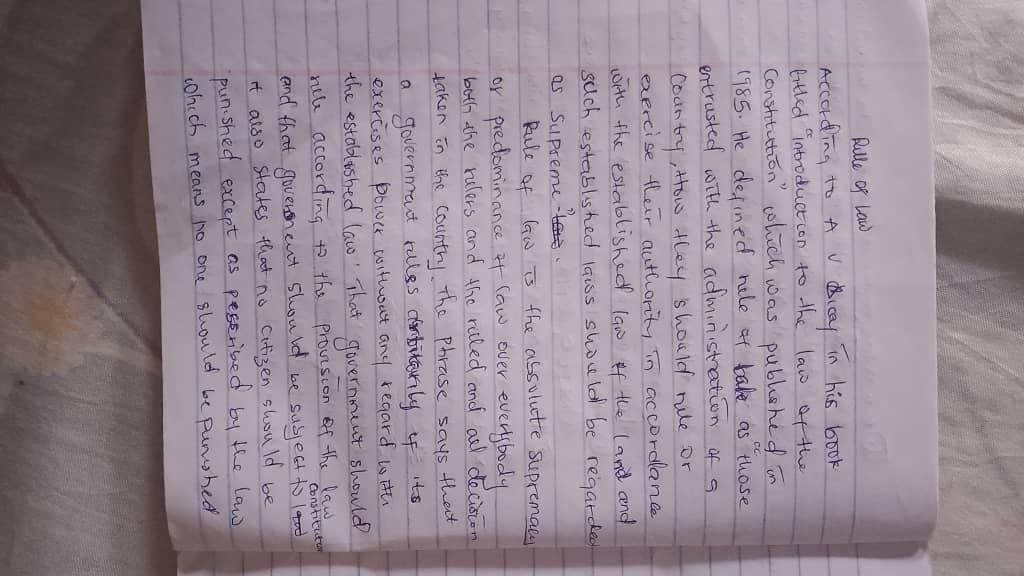 Rule of Law
According to A V Dicey in his book
titled "Introduction to the law of the
Constitution" which was published in
1985. He defined rule of as "those
entrusted with the administration of a
Country, How they should rule or
exercise their authority in accordance
with the established law of the land and
such established laws should be regarded
as supreme".
Rule of law is the absolute supremacy
or predominance of law over everybody
both the rulers and the ruled and all decision
taken in the country. the phrase says that
a government rules arbitrarily if its
exercises power without any regard with
the established law. That government should
rule according to the provision of the law
and that government should be subject to constitution
it also states that no citizen should be
punished except as pescribed by the law
which means no one should be punished